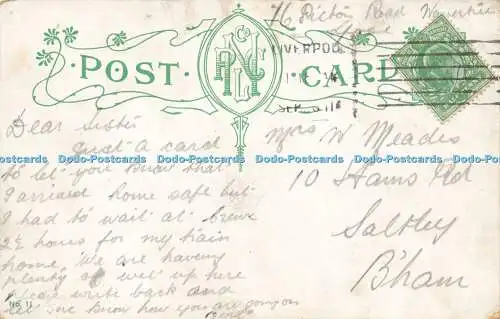 76 Picton Road Wavertree
LIVERPOOL
POST CARD
Dear sister
Just a card
to let you know that
I arriaed home safe but
I had to wait at Crewe
2½ hours for my train
home. We are having
plenty of wet up here
Please write back and
let me know how you are going on
No. 11
Mrs W Meades
10 Hams Rd
Saltley
B'ham
Dodo-Postcards Dodo-Postcards Dodo-Postcards Dodo-Postcards Dodo-Postcards